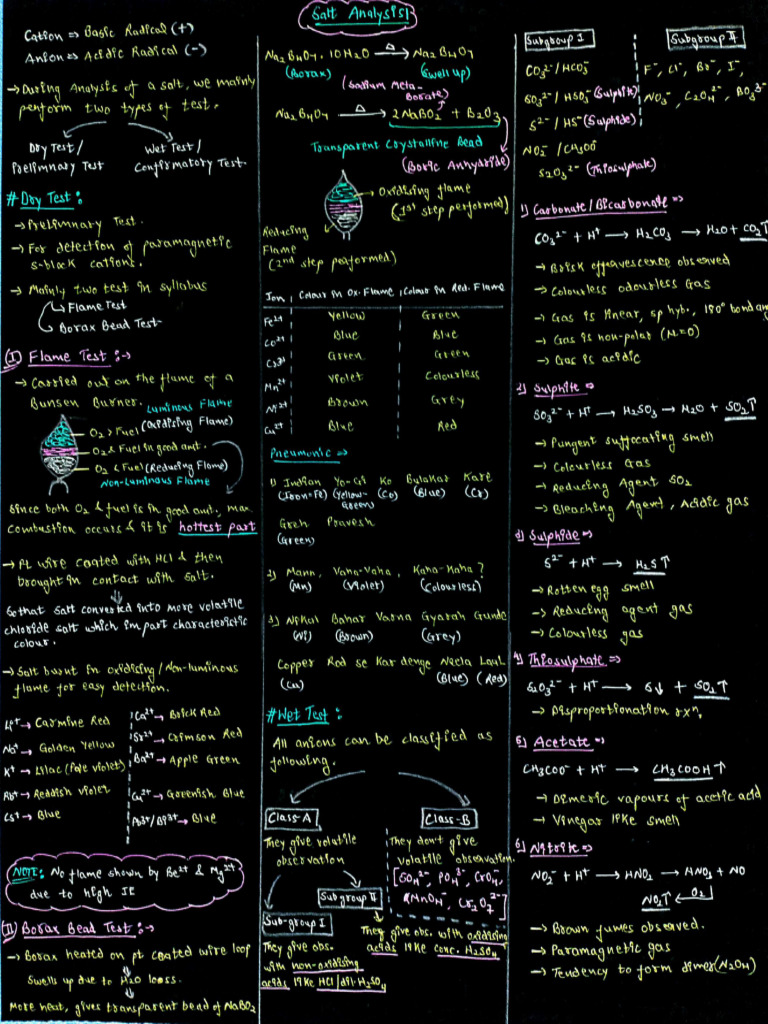 Salt Analysis!
Cation ⇒ Basic Radical (+)
Anion ⇒ Acidic Radical (-)
→ During Analysis of a salt, we mainly
perform two types of test.
Dry Test /
Prelimnary Test
Wet Test /
Confirmatory Test.
# Dry Test :-
→ Prelimnary Test.
→ For detection of paramagnetic
s-block cations.
→ Mainly two test in syllabus
→ Flame Test
→ Borax Bead Test
(I) Flame Test :→
→ Carried out on the flame of a
Bunsen Burner.
Luminous Flame
O₂ > Fuel (Oxidising Flame)
O₂ & Fuel in good amt.
O₂ < Fuel (Reducing Flame)
Non-Luminous Flame
Since both O₂ & fuel is in good amt., max
combustion occurs & it is hottest part
→ Pt wire coated with HCl & then
brought in contact with salt.
So that salt converted into more volatile
chloride salt which impart characteristic
colour.
→ Salt burnt in oxidising / Non-luminous
flame for easy detection.
Li⁺ → Carmine Red
Na⁺ → Golden Yellow
K⁺ → Lilac (Pale violet)
Rb⁺ → Reddish violet
Cs⁺ → Blue
Ca²⁺ → Brick Red
Sr²⁺ → Crimson Red
Ba²⁺ → Apple Green
Cu²⁺ → Greenish Blue
Pb²⁺/Bi³⁺ → Blue
NOTE: No flame shown by Be²⁺ & Mg²⁺
due to high IE
(II) Borax Bead Test :→
→ Borax heated on pt coated wire loop
Swells up due to H₂O loss.
More heat, gives transparent bead of NaBO₂
Na₂B₄O₇. 10H₂O —Δ→ Na₂B₄O₇
(Borax) (Swell up)
(Sodium Meta-
Borate)
Na₂B₄O₇ —Δ→ 2NaBO₂ + B₂O₃
Transparent Crystalline Bead
(Boric Anhydride)
→ Oxidising flame
(1st step performed)
Reducing
Flame
(2nd step performed)
Ion | Colour in Ox. Flame | Colour in Red. Flame
Fe²⁺ Yellow Green
Co²⁺ Blue Blue
Cr³⁺ Green Green
Mn²⁺ Violet Colourless
Ni²⁺ Brown Grey
Cu²⁺ Blue Red
Pneumonic ⇒
1) Indian Yo-Gi Ko Bulakar Kare
(Iron=Fe) (Yellow-Green) (Co) (Blue) (Cr)
Greh Pravesh
(Green)
2) Mann, Vaha-Vaha, Kaha-Kaha?
(Mn) (Violet) (Colourless)
3) Nikal Bahar Varna Gyarah Gunde
(Ni) (Brown) (Grey)
Copper Rod se Kar denge Neela Laal
(Cu) (Blue) (Red)
# Wet Test :
All anions can be classified as
following.
Class-A
They give volatile
observation
Class-B
They don't give
volatile observation.
[SO₄²⁻, PO₄³⁻, CrO₄²⁻,
MnO₄⁻, Cr₂O₇²⁻]
Sub-group I
They give obs.
with non-oxidising
acids like HCl/dil. H₂SO₄
Subgroup II
They give obs. with oxidising
acids like conc. H₂SO₄
Subgroup I
CO₃²⁻/HCO₃⁻
SO₃²⁻/HSO₃⁻ (Sulphite)
S²⁻/HS⁻ (Sulphide)
NO₂⁻/CH₃COO⁻
S₂O₃²⁻ (Thiosulphate)
Subgroup II
F⁻, Cl⁻, Br⁻, I⁻,
NO₃⁻, C₂O₄²⁻, BO₃³⁻
1) Carbonate/Bicarbonate ⇒
CO₃²⁻ + H⁺ → H₂CO₃ → H₂O + CO₂↑
→ Brisk effervescence observed
→ Colourless odourless Gas
→ Gas is linear, sp hyb., 180° bond ang
→ Gas is non-polar (μ=0)
→ Gas is acidic
2) Sulphite ⇒
SO₃²⁻ + H⁺ → H₂SO₃ → H₂O + SO₂↑
→ Pungent suffocating smell
→ Colourless Gas
→ Reducing Agent SO₂
→ Bleaching Agent, Acidic gas
3) Sulphide ⇒
S²⁻ + H⁺ → H₂S↑
→ Rotten egg smell
→ Reducing agent gas
→ Colourless gas
4) Thiosulphate ⇒
S₂O₃²⁻ + H⁺ → S↓ + SO₂↑
→ Disproportionation rxn.
5) Acetate ⇒
CH₃COO⁻ + H⁺ → CH₃COOH↑
→ Dimeric vapours of acetic acid
→ Vinegar like smell
6) Nitrite ⇒
NO₂⁻ + H⁺ → HNO₂ → HNO₃ + NO
NO₂↑ ← O₂
→ Brown fumes observed.
→ Paramagnetic gas
→ Tendency to form dimer (N₂O₄)